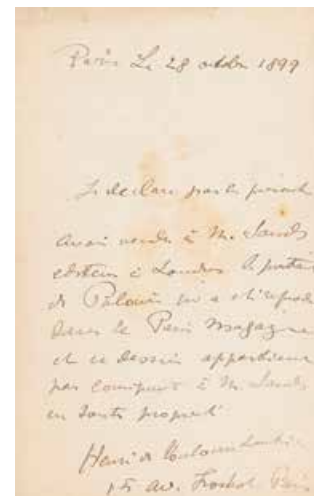 Paris Le 28 octobre 1899
Je declare par la presente
avoir vendu à Mr. Sands
editeur à Londres le portrait
de Polaire qui a été reproduit
dans le Paris Magazine
et ce dessin appartient
par consequent à Mr. Sands
en toute propriété
Henri de Toulouse Lautrec
15 av. Frochot Paris